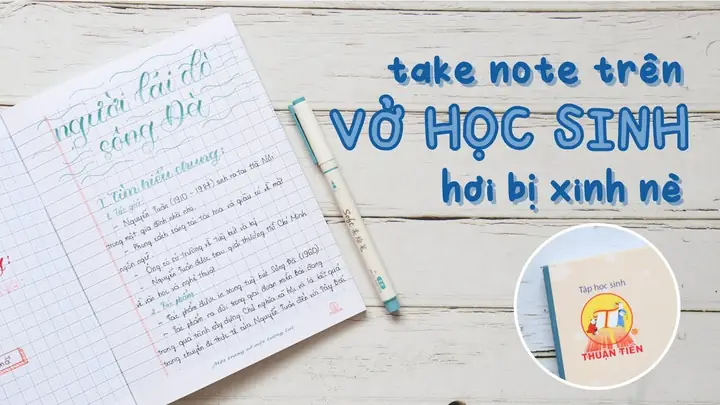 người lái đò
sông Đà
I. Tìm hiểu chung:
1. Tác giả:
- Nguyễn Tuân (1910 - 1987) sinh ra tại Hà Nội
trong một gia đình nhà nho.
- Phong cách sáng tác tài hoa và giàu có về mặt
ngôn ngữ.
- Ông có sở trường về tuỳ bút và ký
- Nguyễn Tuân được trao giải thưởng Hồ Chí Minh
về văn học và nghệ thuật
2. Tác phẩm:
- Tác phẩm được in trong tuỳ bút Sông Đà (1960).
- Tác phẩm ra đời trong giai đoạn miền Bắc đang
trong quá trình xây dựng Chủ nghĩa xã hội và là kết quả
trong chuyến đi thực tế của Nguyễn Tuân đến với Tây Bắc
take note trên
VỞ HỌC SINH
hơi bị xinh nè
Tập học sinh
THUẬN TIẾN